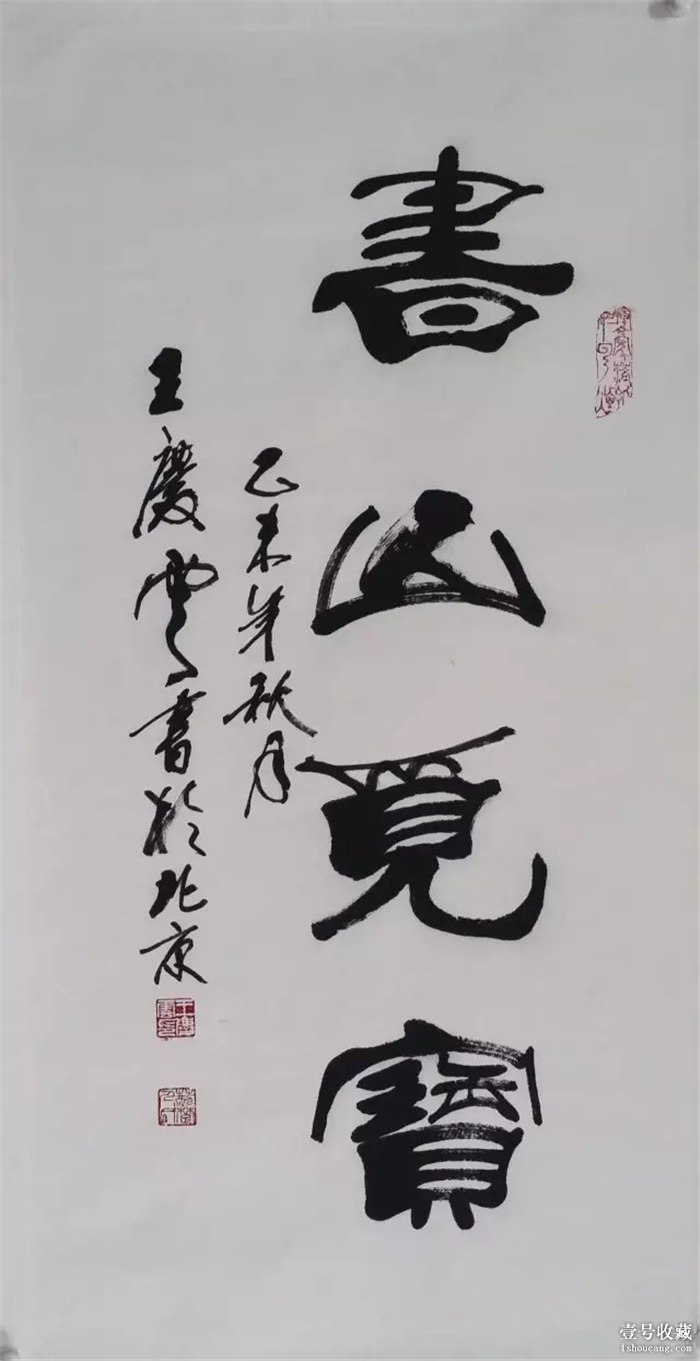 書山覓寶
乙未年秋月
王慶雲書於北京
壹号收藏
1shoucang.com